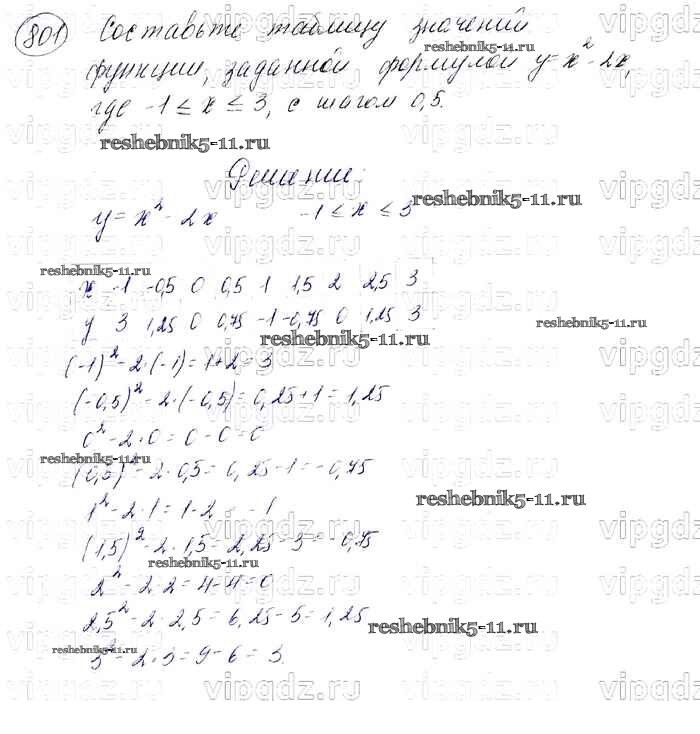 801 Составьте таблицу значений
функции, заданной формулой y=x²-2x,
где -1 ≤ x ≤ 3, с шагом 0,5.
Решение:
y=x²-2x -1 ≤ x ≤ 3
x -1 -0,5 0 0,5 1 1,5 2 2,5 3
y 3 1,25 0 0,75 -1 -0,75 0 1,25 3
(-1)²-2·(-1)=1+2=3
(-0,5)²-2·(-0,5)=0,25+1=1,25
0²-2·0=0-0=0
(0,5)²-2·0,5=0,25-1=-0,75
1²-2·1=1-2=-1
(1,5)²-2·1,5=2,25-3=-0,75
2²-2·2=4-4=0
2,5²-2·2,5=6,25-5=1,25
3²-2·3=9-6=3.
reshebnik5-11.ru
reshebnik5-11.ru
reshebnik5-11.ru
reshebnik5-11.ru
reshebnik5-11.ru
reshebnik5-11.ru
reshebnik5-11.ru
reshebnik5-11.ru
reshebnik5-11.ru
reshebnik5-11.ru
reshebnik5-11.ru
vipgdz.ru